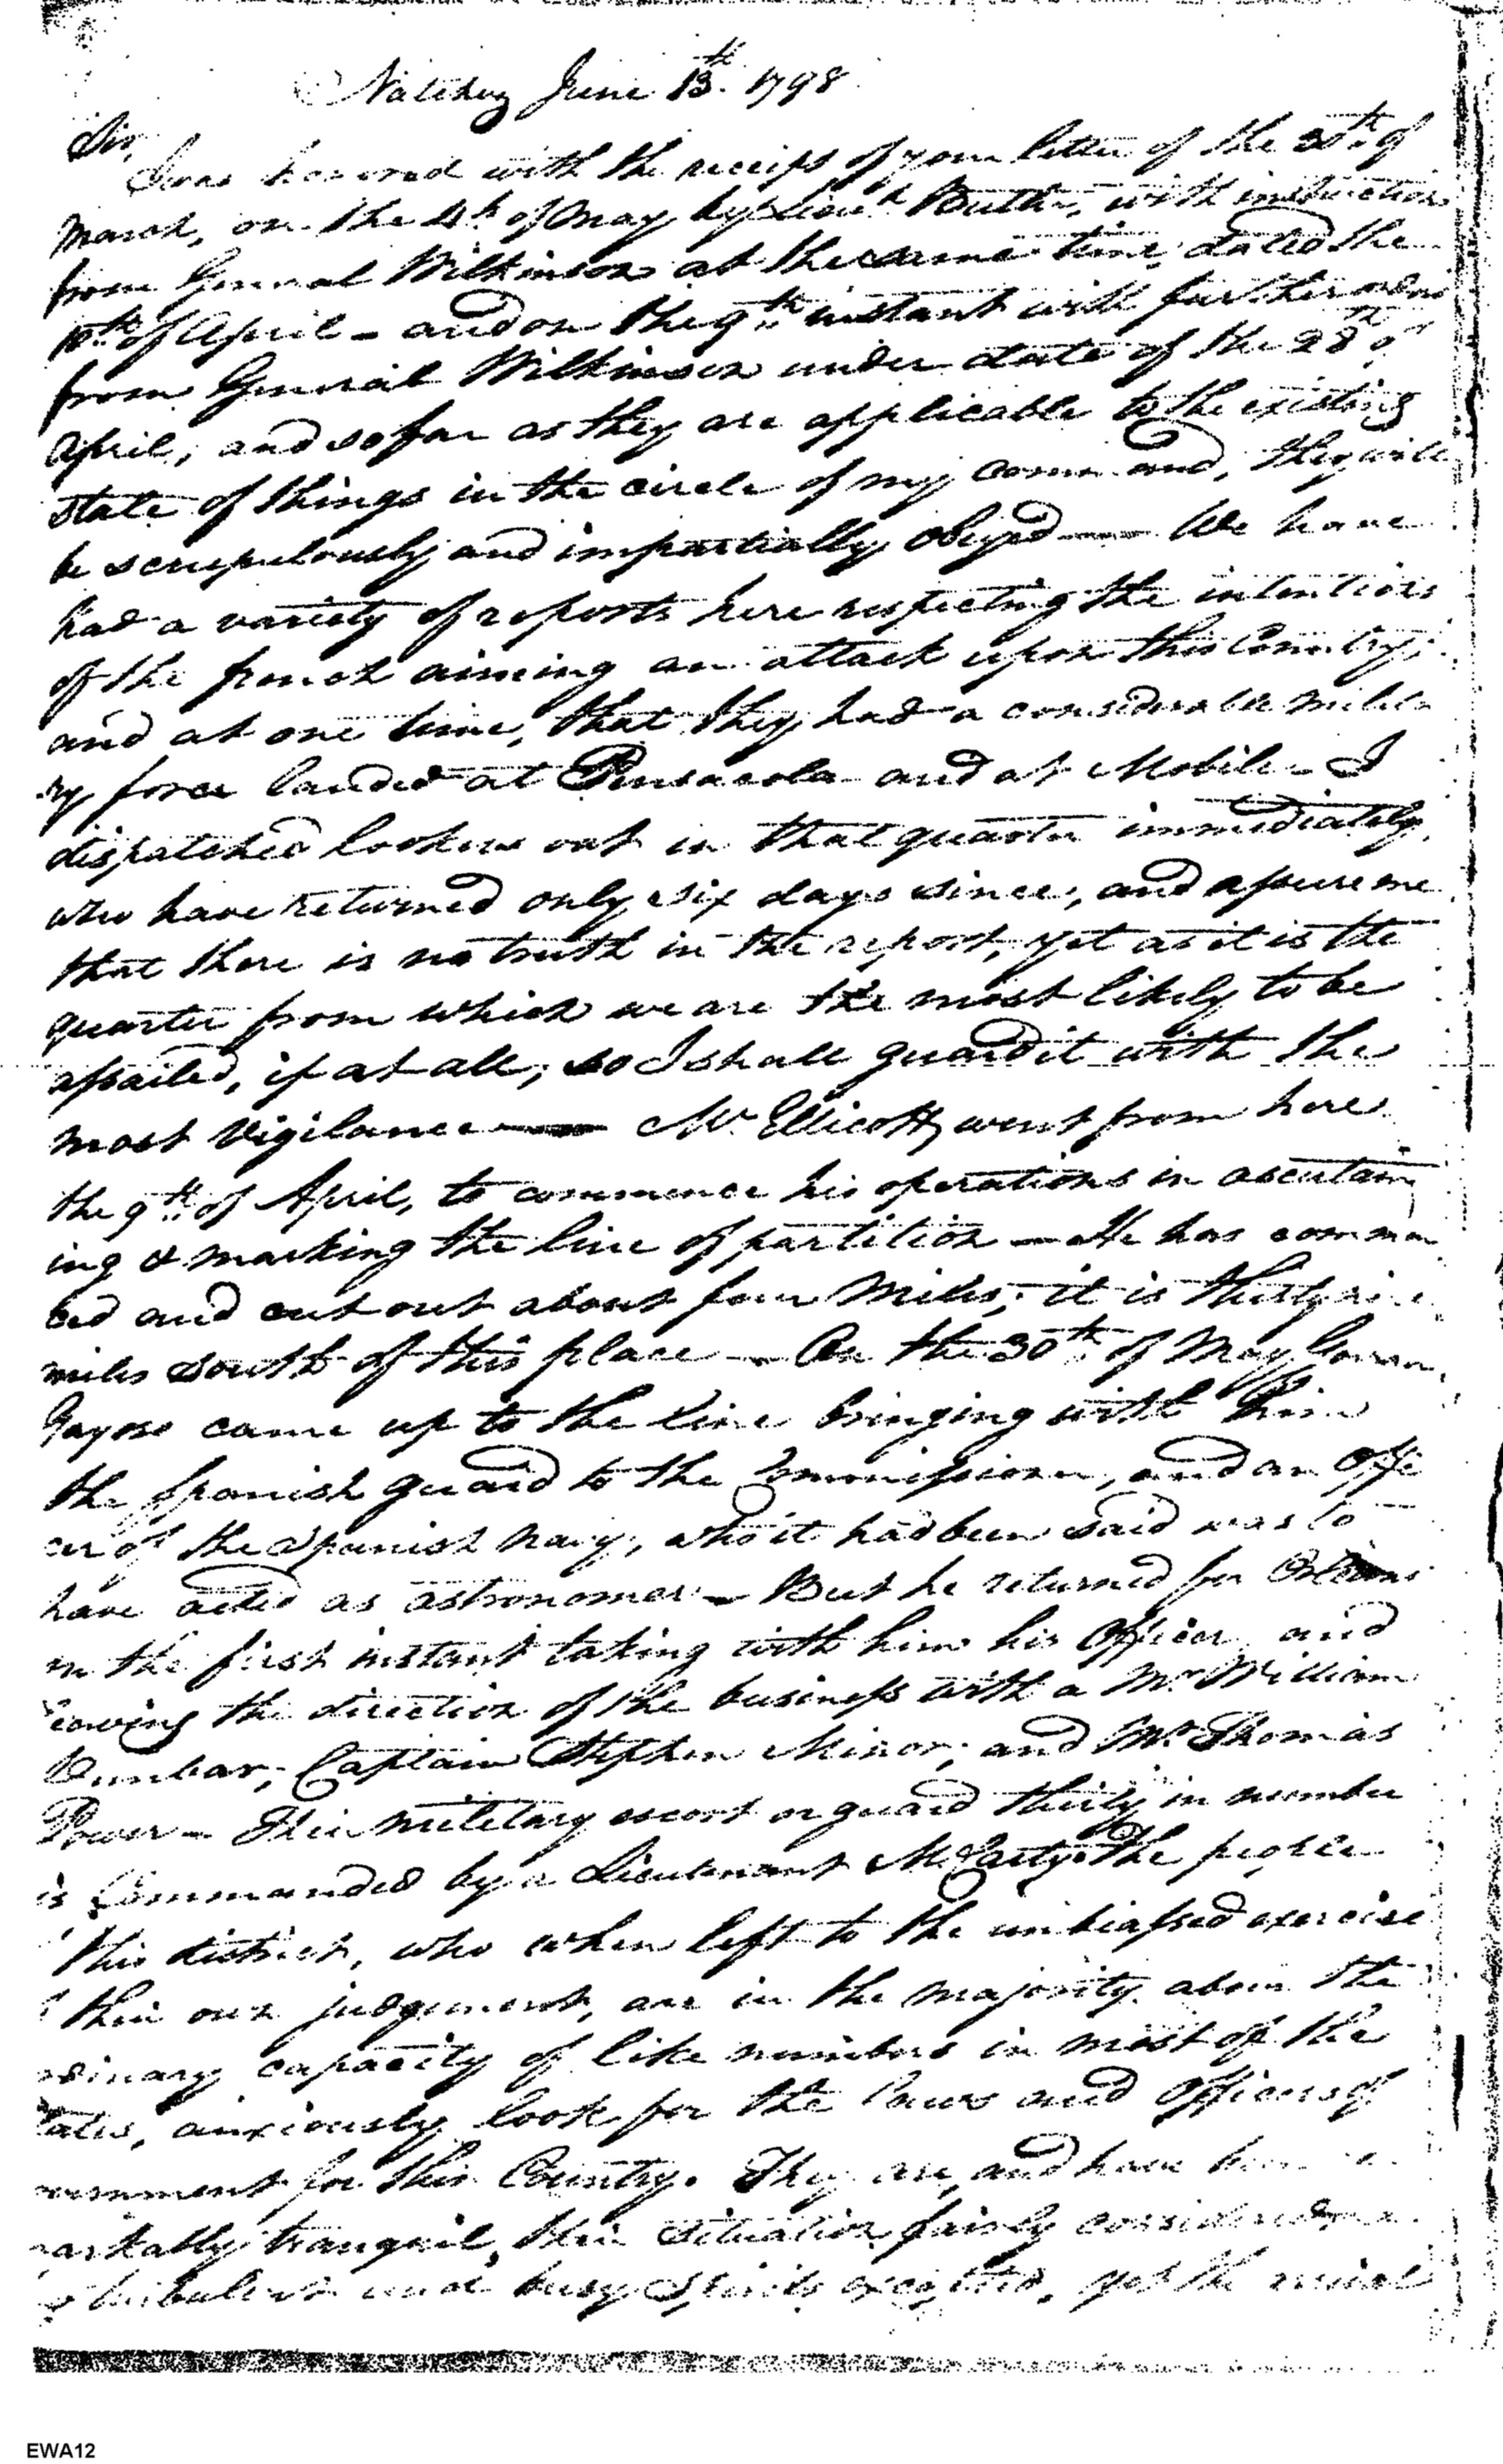 Natchez June 13th. 1798
Sir,
I was honored with the receipt of your letter of the 20th. of
March, on the 4th of May by Lieut. Butler, with instructions
from General Wilkinson at the same time, dated the
10th of April - and on the 9th instant with further orders
from General Wilkinson under date of the 28th of
April; and so far as they are applicable to the existing
state of things in the circle of my command, they will
be scrupulously and impartially obeyed — We have
had a variety of reports here respecting the intentions
of the french aiming an attack upon this Country;
and at one time, that they had a considerable milita
ry force landed at Pensacola and at Mobile - I
dispatched lookers out in that quarter immediately,
who have returned only six days since, and assure me
that there is no truth in the report, yet as it is the
quarter from which we are the most likely to be
assailed, if at all; so I shall guard it with the
most vigilance — Mr. Ellicott, went from here
the 9th of April, to commence his operations in ascertain
ing & marking the line of partition — He has commen
ced and cut out about four Miles; it is thirty nine
miles South of this place — On the 30th of May Govern
Gayoso came up to the line bringing with him
the Spanish guard to the Commissioner, and an Offi
cer of the Spanish navy, who it had been said was to
have acted as astronomer - But he returned for Orleans
on the first instant taking with him his Officer, and
leaving the direction of the business with a Mr. William
Dunbar, Captain Stephen Minor, and Mr. Thomas
Power - Their military escort or guard thirty in number
is Commanded by a Lieutenant McCarty. The people
this district, who when left to the unbiassed exercise
their own judgement, are in the majority above the
rdinary capacity of like numbers in most of the
tates, anxiously look for the laws and Officers of
vernment for this Country. They are, and have been
arkably tranquil, their situation fairly considered
turbulent and busy Spirits excepted, yet the
EWA12